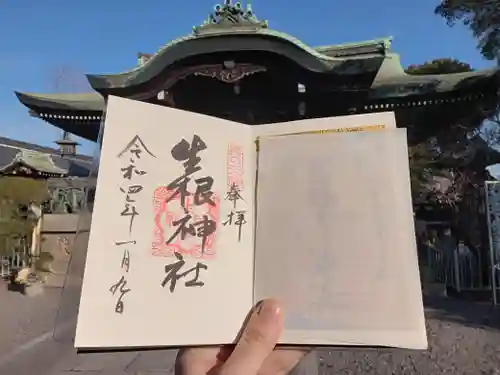 奉拝
生根神社
令和四年一月九日